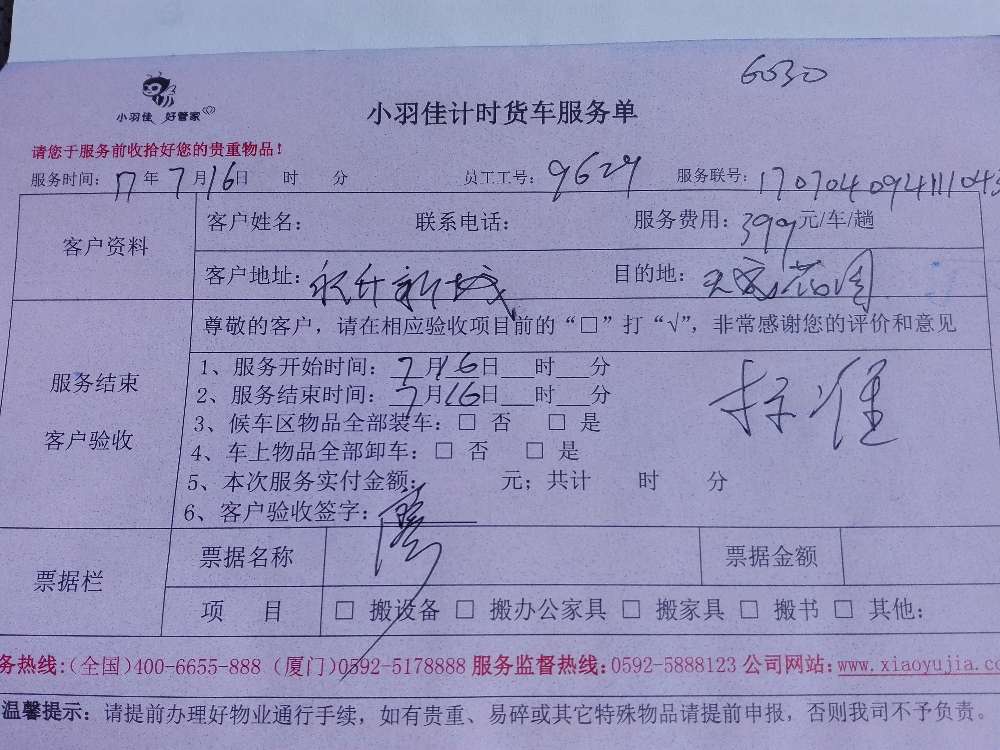 6030
小羽佳 好管家
小羽佳计时货车服务单
请您于服务前收拾好您的贵重物品！
服务时间：17年7月16日 时 分 员工工号：9629 服务联号：1707040941110
客户资料 客户姓名： 联系电话： 服务费用：399元/车/趟
客户地址：永升新城 目的地：天安花园
尊敬的客户，请在相应验收项目前的“□”打“√”，非常感谢您的评价和意见
服务结束
客户验收
1、服务开始时间：7月16日___时___分
2、服务结束时间：7月16日___时___分
标准
3、候车区物品全部装车：□ 否 □ 是
4、车上物品全部卸车：□ 否 □ 是
5、本次服务实付金额： 元；共计 时 分
6、客户验收签字：
票据栏 票据名称 票据金额
项 目 □ 搬设备 □ 搬办公家具 □ 搬家具 □ 搬书 □ 其他：
务热线：（全国）400-6655-888（厦门）0592-5178888 服务监督热线：0592-5888123 公司网站：www.xiaoyujia.co
温馨提示：请提前办理好物业通行手续，如有贵重、易碎或其它特殊物品请提前申报，否则我司不予负责。